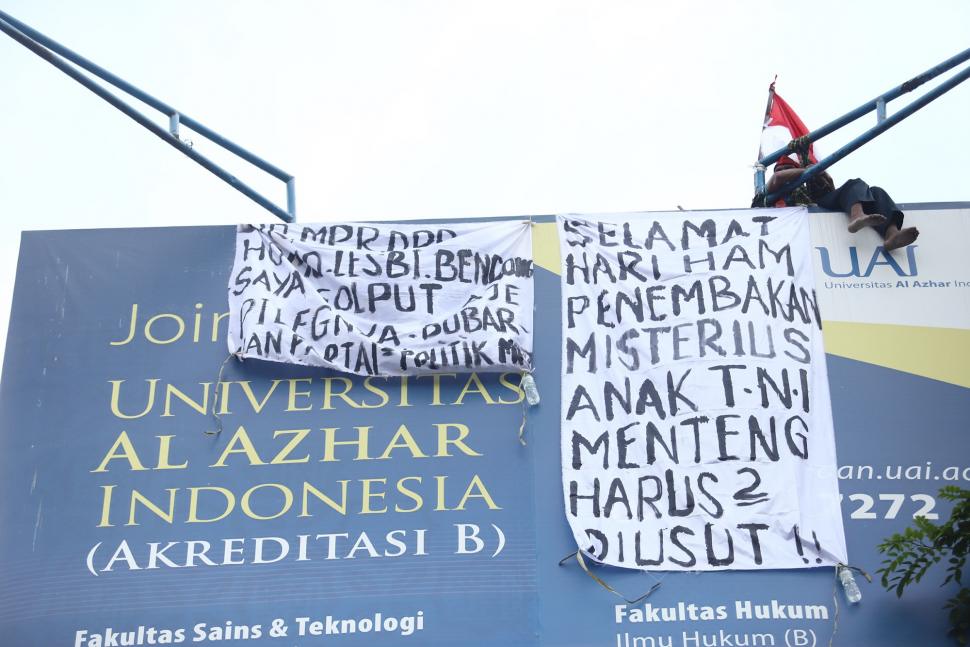 MPR DPR
LESBI.
SAYA GOLPUT
BUBAR
POLITIK
SELAMAT
HARI HAM
PENEMBAKAN
MISTERIUS
ANAK T.N.I
MENTENG
HARUS 2
DIUSUT !!
Join
UNIVERSITAS
AL AZHAR
INDONESIA
(AKREDITASI B)
Fakultas Sains & Teknologi
UAI
Universitas Al Azhar
.uai.ac
7272
Fakultas Hukum
Ilmu Hukum (B)